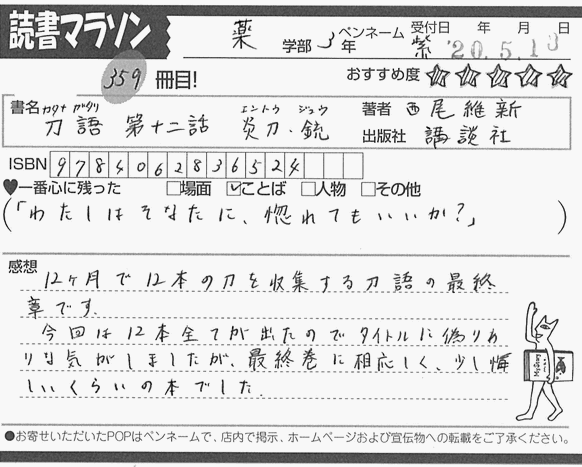 読書マラソン
薬 学部 3 年 ペンネーム 紫 受付日 年 月 日
'20.5.13
359 冊目! おすすめ度 ☆☆☆☆☆
カタナ ガタリ エントウ ジュウ
書名 刀語 第十二話 炎刀・銃 著者 西尾維新
出版社 講談社
ISBN 9784062836524
♥一番心に残った □場面 ☑ことば □人物 □その他
(「わたしはそなたに、惚れてもいいか?」)
感想
12ヶ月で12本の刀を収集する刀語の最終
章です.
今回は12本全てが出たのでタイトルに偽りあ
りな気がしましたが、最終巻に相応しく、少し悔
しいくらいの本でした.
●お寄せいただいたPOPはペンネームで、店内で掲示、ホームページおよび宣伝物への転載をご了承ください。